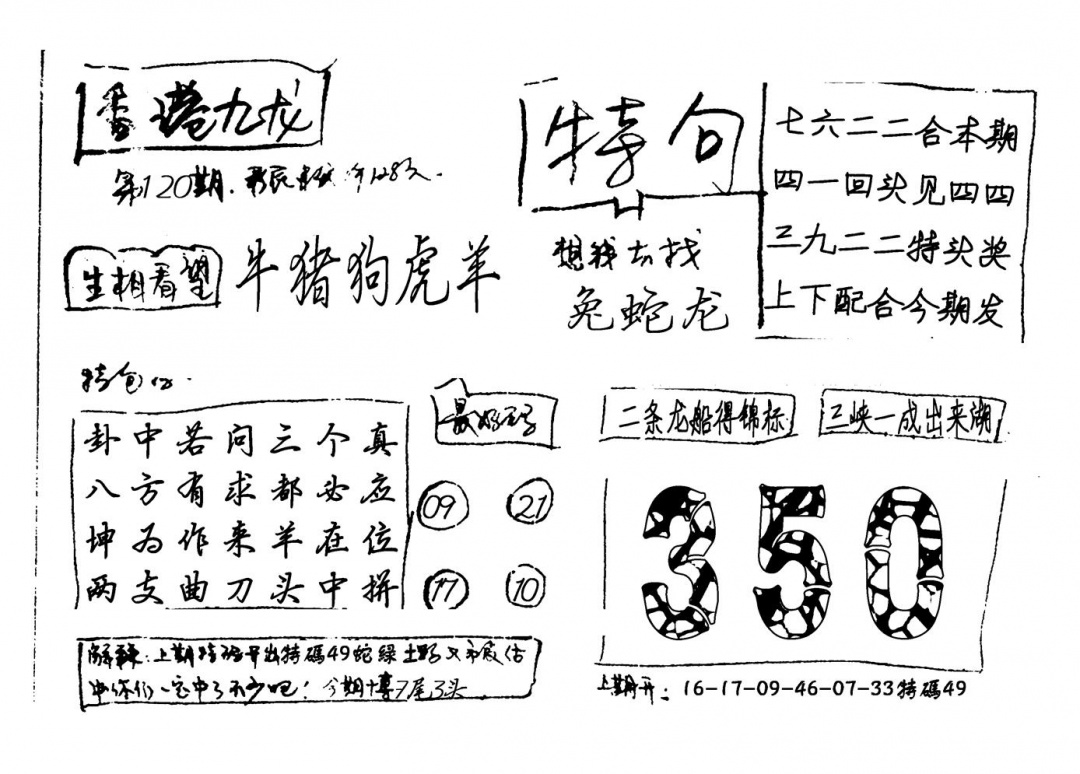 香港九龙
第120期.
生相看望
牛猪狗虎羊
特句
想我去找
兔蛇龙
七六二二合本期
四一回头见四四
三九二二特头奖
上下配合今期发
卦中若问三个真
八方有求都必应
坤为作来羊在位
两支曲刀头中拼
09 21
17 10
二条龙船得锦标
三峡一成出来湖
350
解释:上期 出特碼49蛇綠土
中你们一定中了不少吧!今期博7尾3头
上期开:16-17-09-46-07-33特碼49